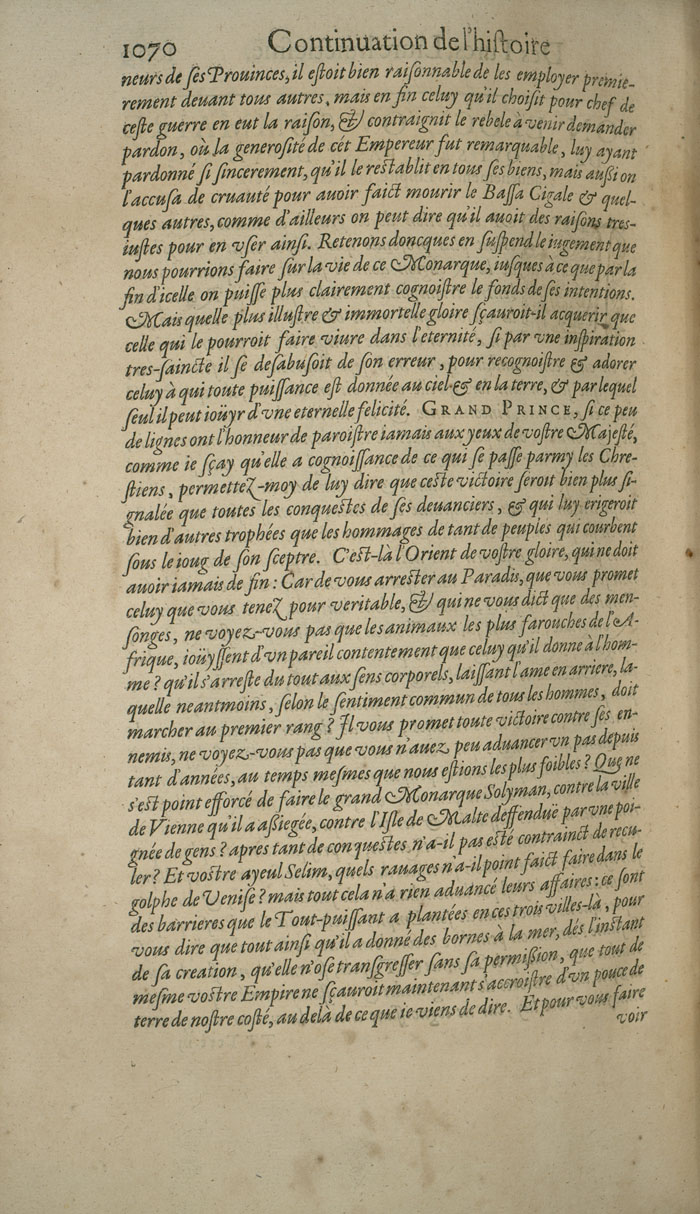 1070 Continuation de l'histoire
neurs de ſes Prouinces, il eſtoit bien raiſonnable de les employer premie-
rement deuant tous autres, mais en fin celuy qu'il choiſit pour chef de
ceſte guerre en eut la raiſon, & contraignit le rebele à venir demander
pardon, où la generoſité de cét Empereur fut remarquable, luy ayant
pardonné ſi ſincerement, qu'il le restablit en tous ſes biens, mais auſſi on
l'accuſa de cruauté pour auoir faict mourir le Baſſa Cigale & quel-
ques autres, comme d'ailleurs on peut dire qu'il auoit des raiſons tres-
iuſtes pour en vſer ainſi. Retenons doncques en ſuſpend le iugement que
nous pourrions faire ſur la vie de ce Monarque, iuſques à ce que par la
fin d'icelle on puiſſe plus clairement cognoiſtre le fonds de ſes intentions.
Mais quelle plus illuſtre & immortelle gloire ſçauroit-il acquerir que
celle qui le pourroit faire viure dans l'eternité, ſi par vne inſpiration
tres-ſaincte il ſe deſabuſoit de ſon erreur, pour recognoiſtre & adorer
celuy à qui toute puiſſance eſt donnée au ciel & en la terre, & par lequel
ſeul il peut ioüyr d'vne eternelle felicité. GRAND PRINCE, ſi ce peu
de lignes ont l'honneur de paroiſtre iamais aux yeux de voſtre Majeſté,
comme ie ſçay qu'elle a cognoiſſance de ce qui ſe paſſe parmy les Chre-
ſtiens, permettez-moy de luy dire que ceſte victoire ſeroit bien plus ſi-
gnalée que toutes les conqueſtes de ſes deuanciers, & qui luy erigeroit
bien d'autres trophées que les hommages de tant de peuples qui courbent
ſous le ioug de ſon ſceptre. C'eſt-là l'Orient de voſtre gloire, qui ne doit
auoir iamais de fin: Car de vous arreſter au Paradis, que vous promet
celuy que vous tenez pour veritable, & qui ne vous dict que des men-
ſonges, ne voyez-vous pas que les animaux les plus farouches de l'A-
frique, ioüyſſent d'vn pareil contentement que celuy qu'il donne à l'hom-
me? qu'il s'arreſte du tout aux ſens corporels, laiſſant l'ame en arriere, la-
quelle neantmoins, ſelon le ſentiment commun de tous les hommes, doit
marcher au premier rang? Il vous promet toute victoire contre ſes en-
nemis, ne voyez-vous pas que vous n'auez peu aduancer vn pas depuis
tant d'années, au temps meſmes que nous eſtions les plus foibles? Que ne
s'eſt point efforcé de faire le grand Monarque Solyman, contre la ville
de Vienne qu'il a aſſiegée, contre l'Iſle de Malte deffenduë par vne poi-
gnée de gens? apres tant de conqueſtes n'a-il pas eſté contrainct de recu-
ler? Et voſtre ayeul Selim, quels rauages n'a-il point faict faire dans le
golphe de Veniſe? mais tout cela n'a rien aduancé leurs affaires: ce ſont
des barrieres que le Tout-puiſſant a plantées en ces trois villes-là, pour
vous dire que tout ainſi qu'il a donné des bornes à la mer, dés l'inſtant
de ſa creation, qu'elle n'oſe tranſgreſſer ſans ſa permiſſion, que tout de
meſme voſtre Empire ne ſçauroit maintenant s'accroiſtre d'vn pouce de
terre de noſtre coſté, au delà de ce que ie viens de dire. Et pour vous faire
voir